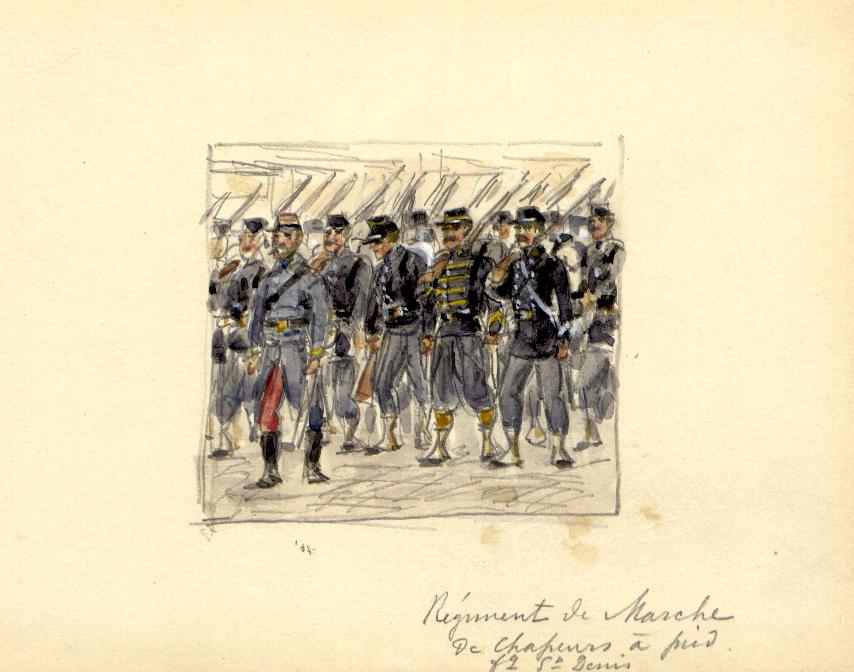 Régiment de Marche
De Chapeurs à pied.
St Denis